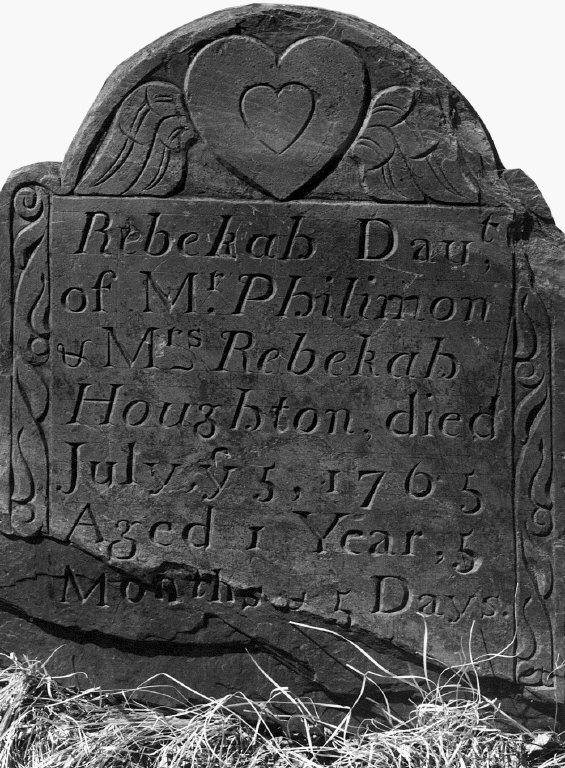 Rebekah Daut,
of Mr. Philimon
& Mrs Rebekah
Houghton, died
July, ye 5, 1765
Aged 1 Year, 5
Months & 5 Days.